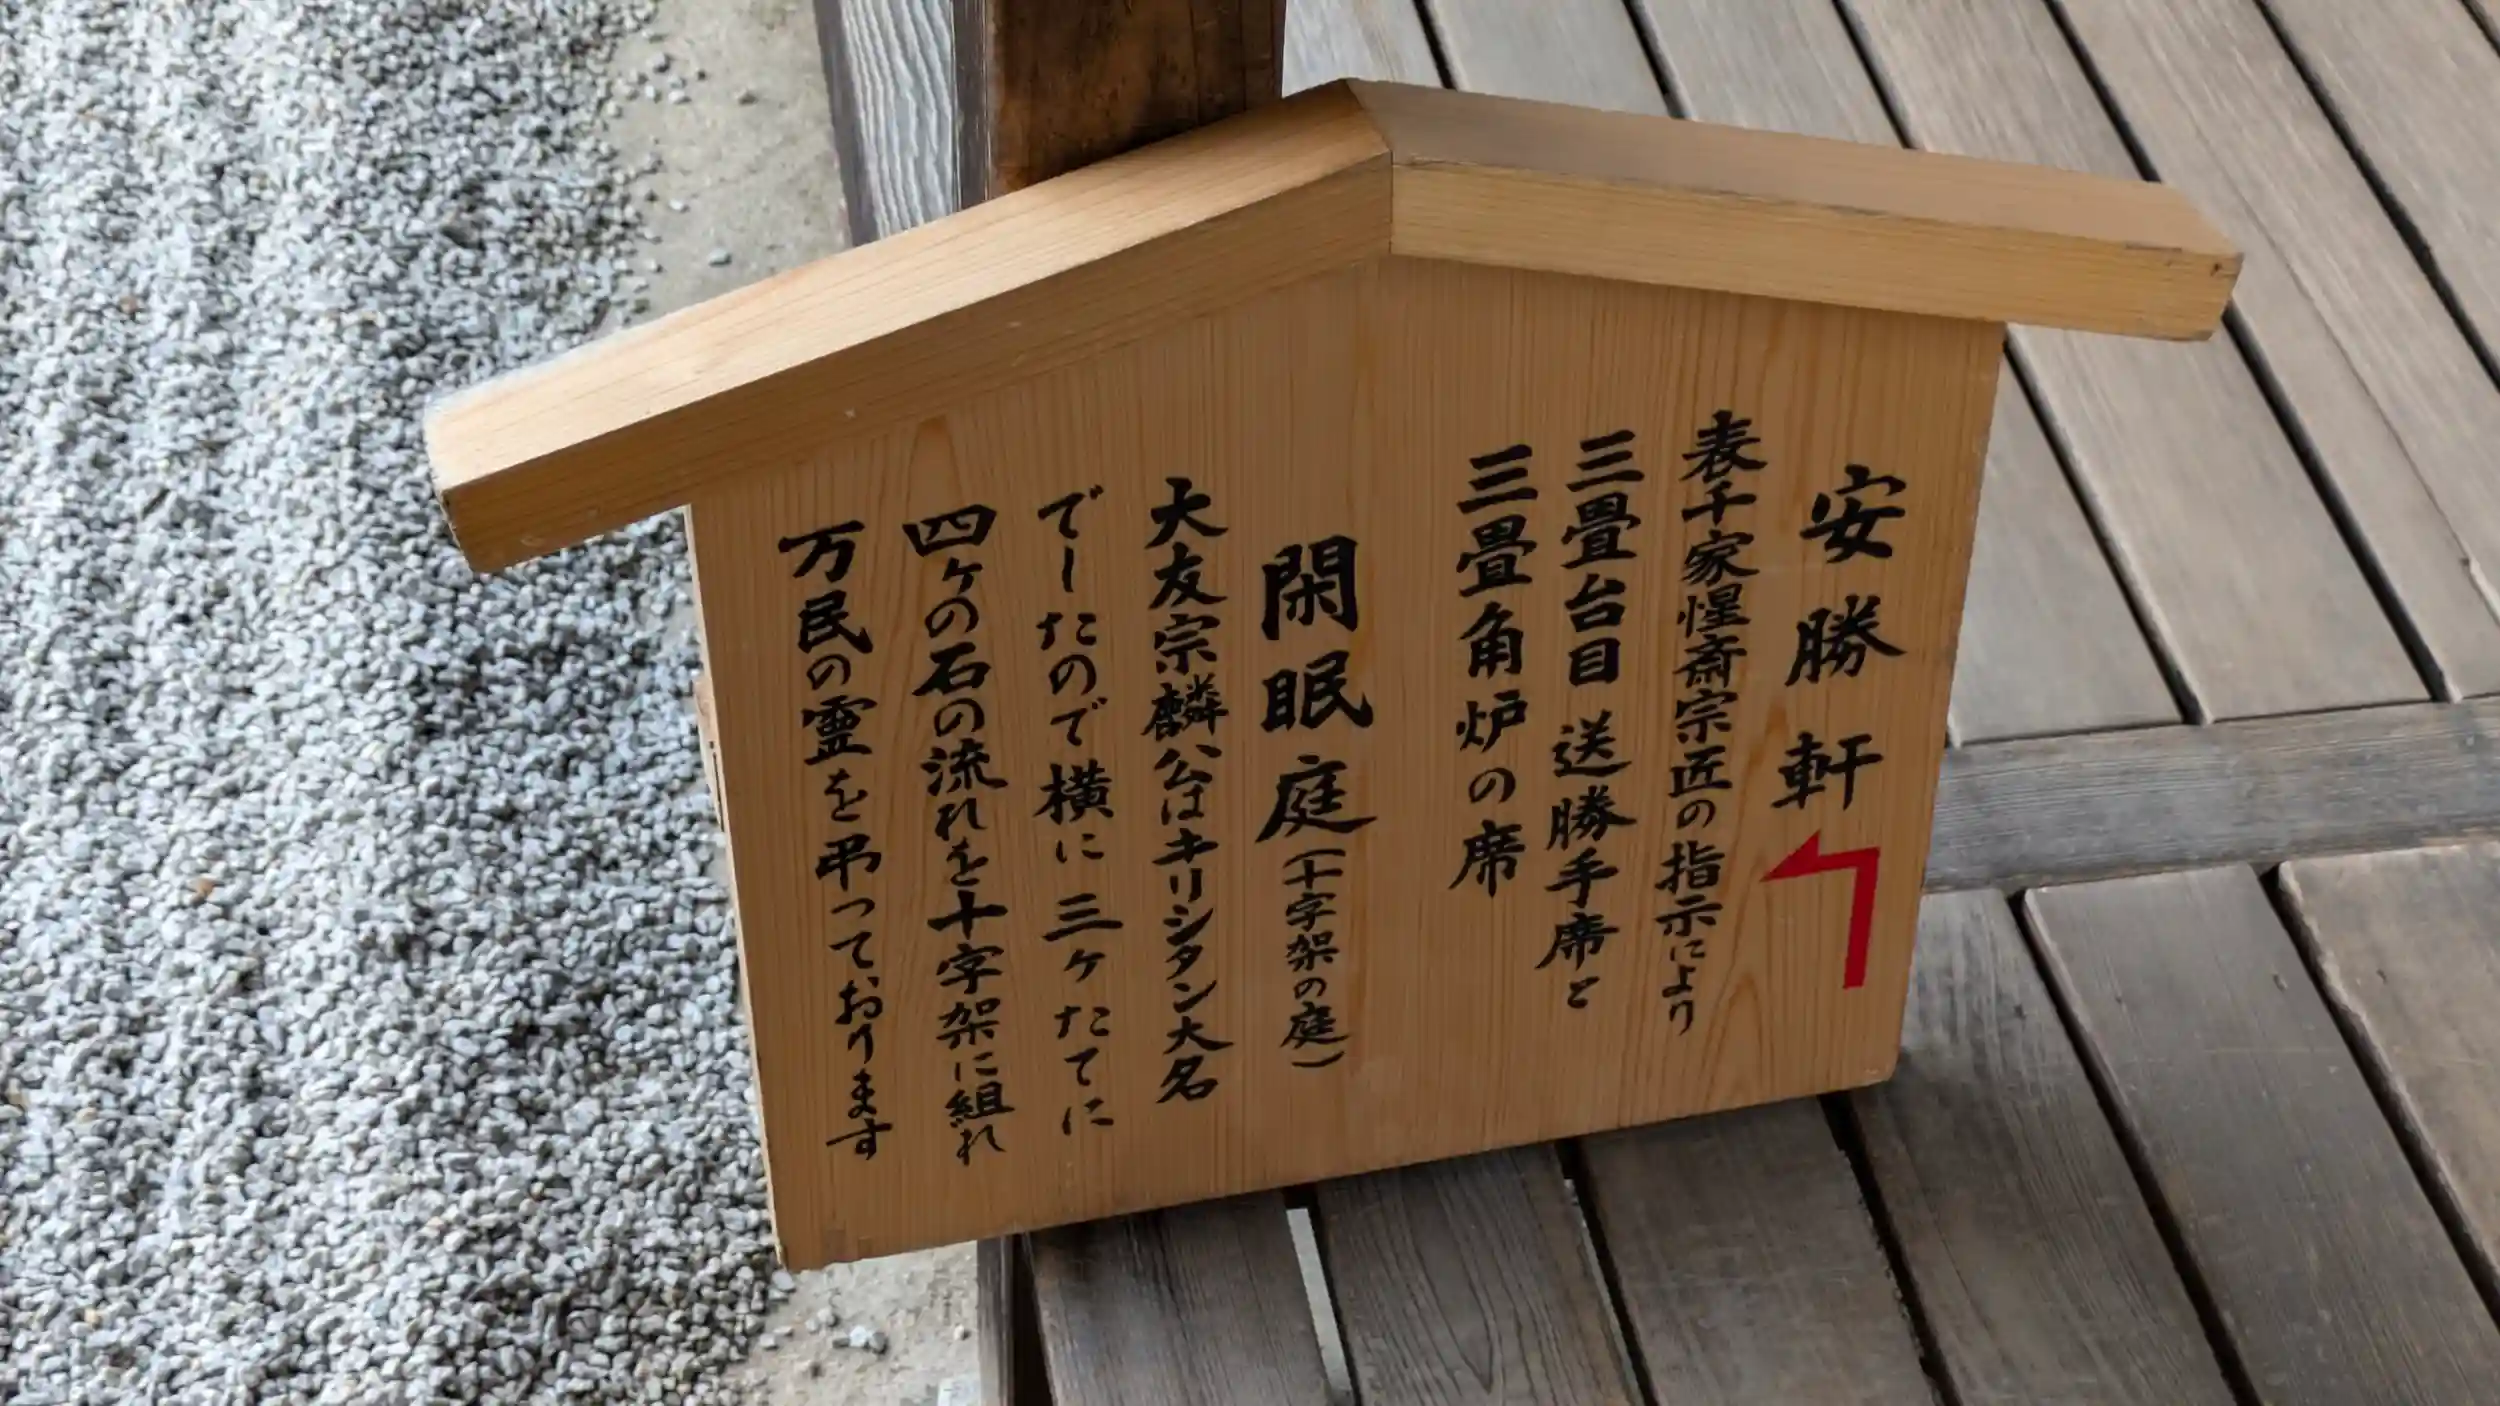 安勝軒
表千家惺斎宗匠の指示により
三畳台目 送勝手席と
三畳角炉の席
閑眠庭(十字架の庭)
大友宗麟公はキリシタン大名
でしたので横に三ヶたてに
四ヶの石の流れを十字架に組れ
万民の霊を弔っております